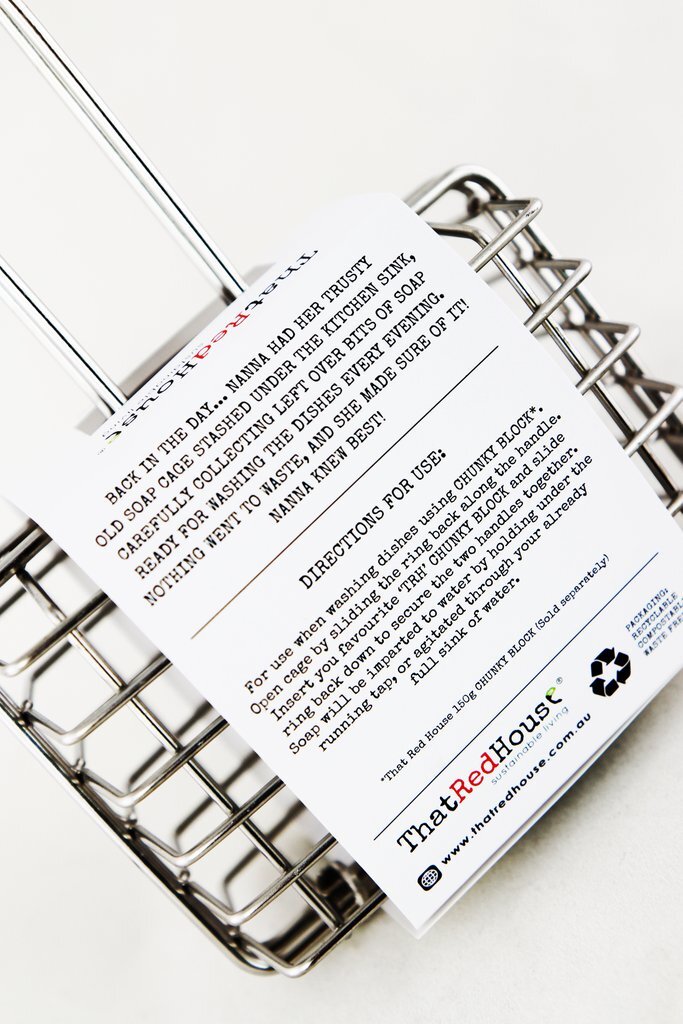 ThatRedHouse
BACK IN THE DAY... NANNA HAD HER TRUSTY
OLD SOAP CAGE STASHED UNDER THE KITCHEN SINK,
CAREFULLY COLLECTING LEFT OVER BITS OF SOAP
READY FOR WASHING THE DISHES EVERY EVENING.
NOTHING WENT TO WASTE, AND SHE MADE SURE OF IT!
NANNA KNEW BEST!
DIRECTIONS FOR USE:
For use when washing dishes using CHUNKY BLOCK*.
Open cage by sliding the ring back along the handle.
Insert you favourite 'TRH' CHUNKY BLOCK and slide
ring back down to secure the two handles together.
Soap will be imparted to water by holding under the
running tap, or agitated through your already
full sink of water.
*That Red House 150g CHUNKY BLOCK (Sold separately)
ThatRedHouse®
sustainable living
www.thatredhouse.com.au
PACKAGING:
RECYCLABLE
COMPOSTABLE
WASTE FREE